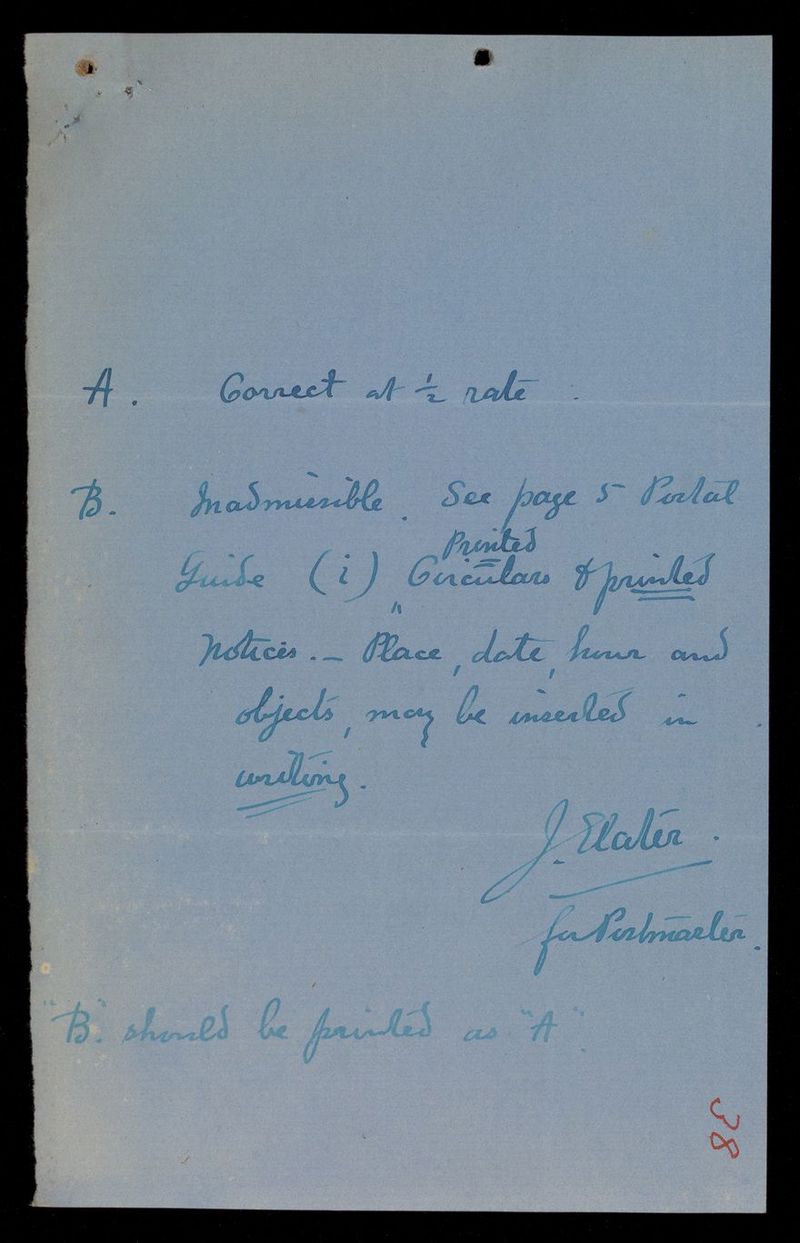 A. Correct at ½ rate.
B. Inadmissible. See page 5 Postal
Printed
Guide (i) Circulars & printed
notices. — Place, date, hour and
objects, may be inserted in
writing.
J. Slater.
for Postmaster.
"B" should be printed as "A".
38